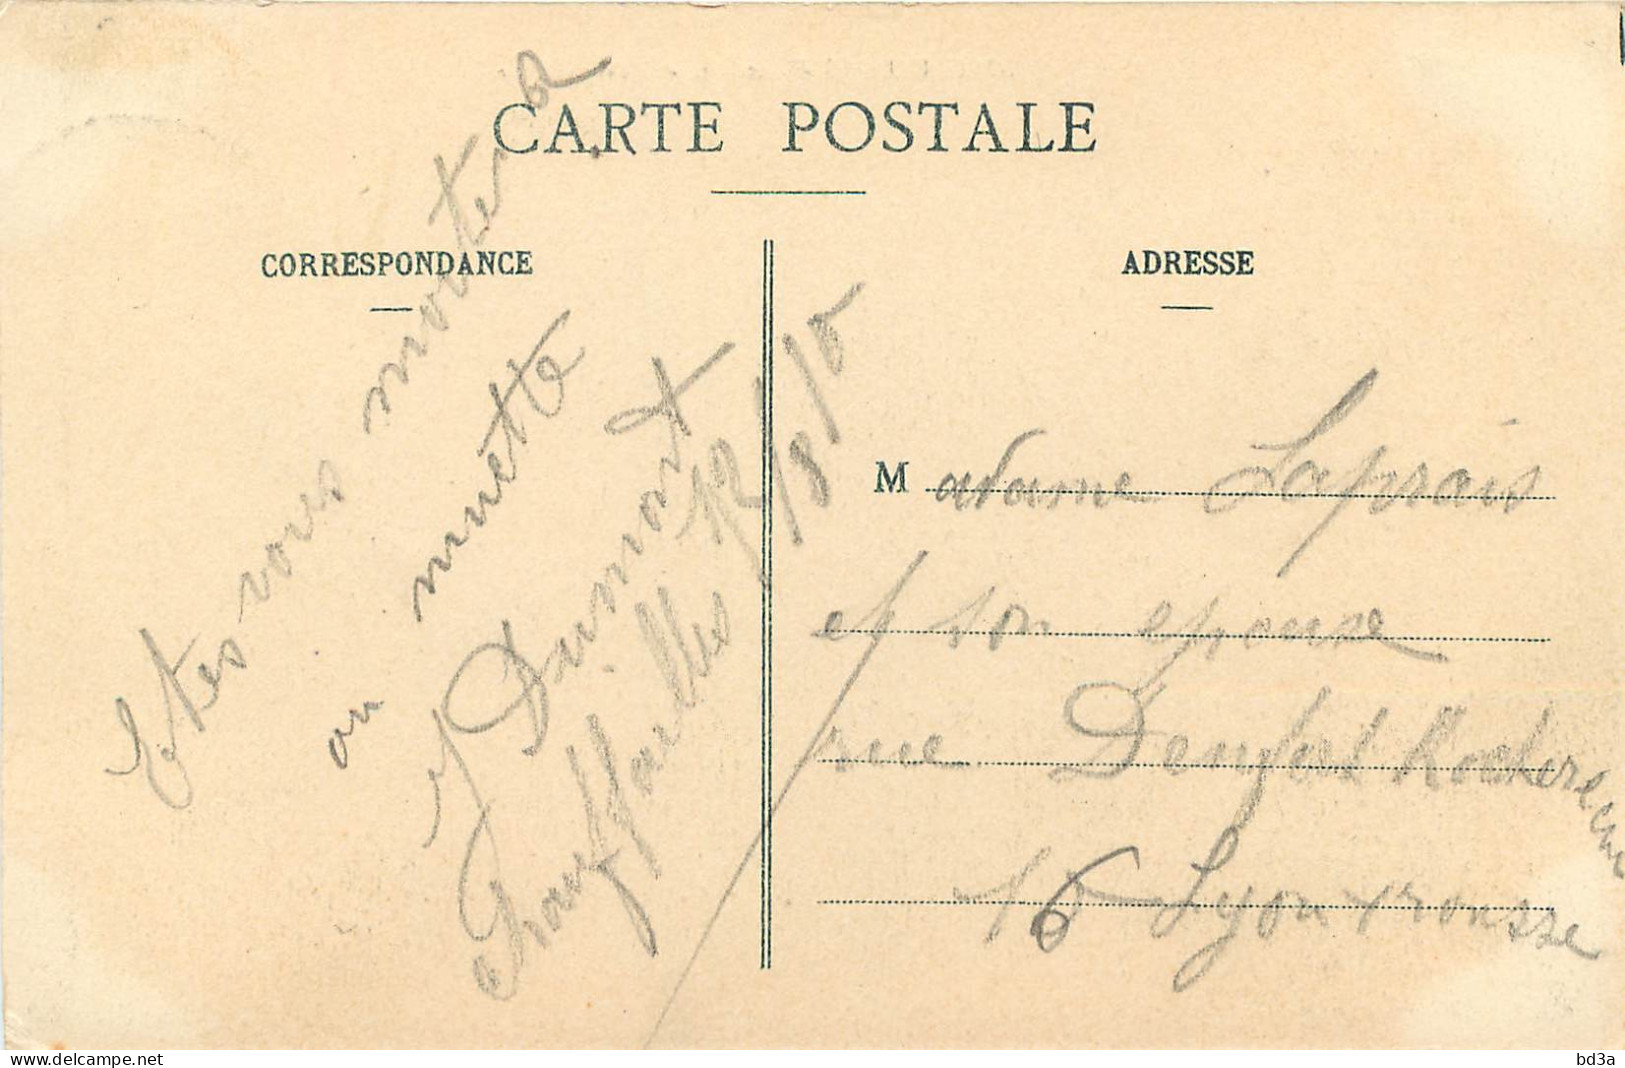 CARTE POSTALE
CORRESPONDANCE
ADRESSE
Etes vous monter a
au muette
J Dumont
Chauffailles 12/8/5
Madame Laprais
et son epouse
rue Denfert Rochereau
16 Lyon + rousse
delcampe.net
bd3a